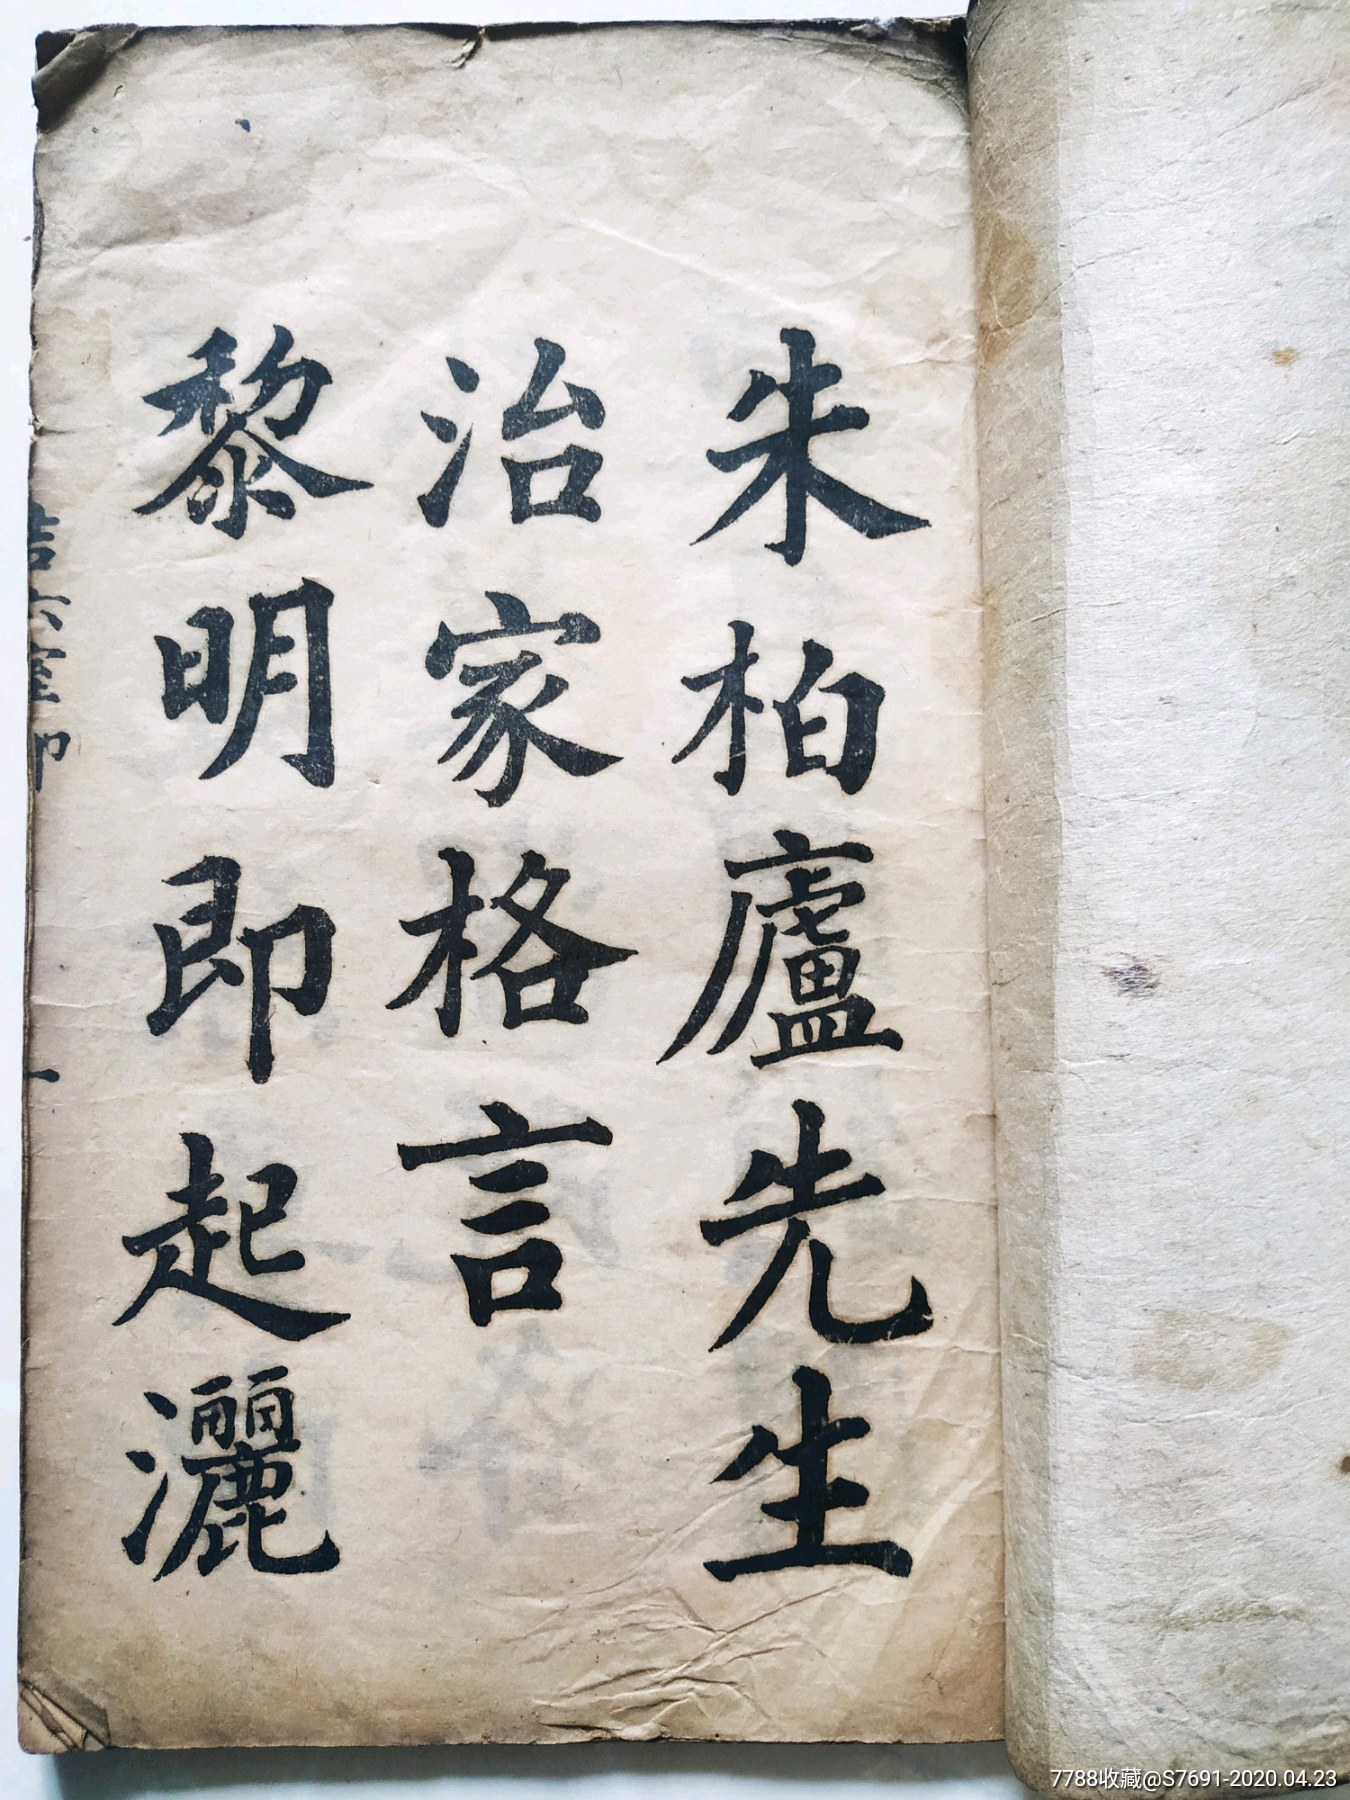 朱柏廬先生
治家格言
黎明即起灑
一
7788收藏@S7691-2020.04.23